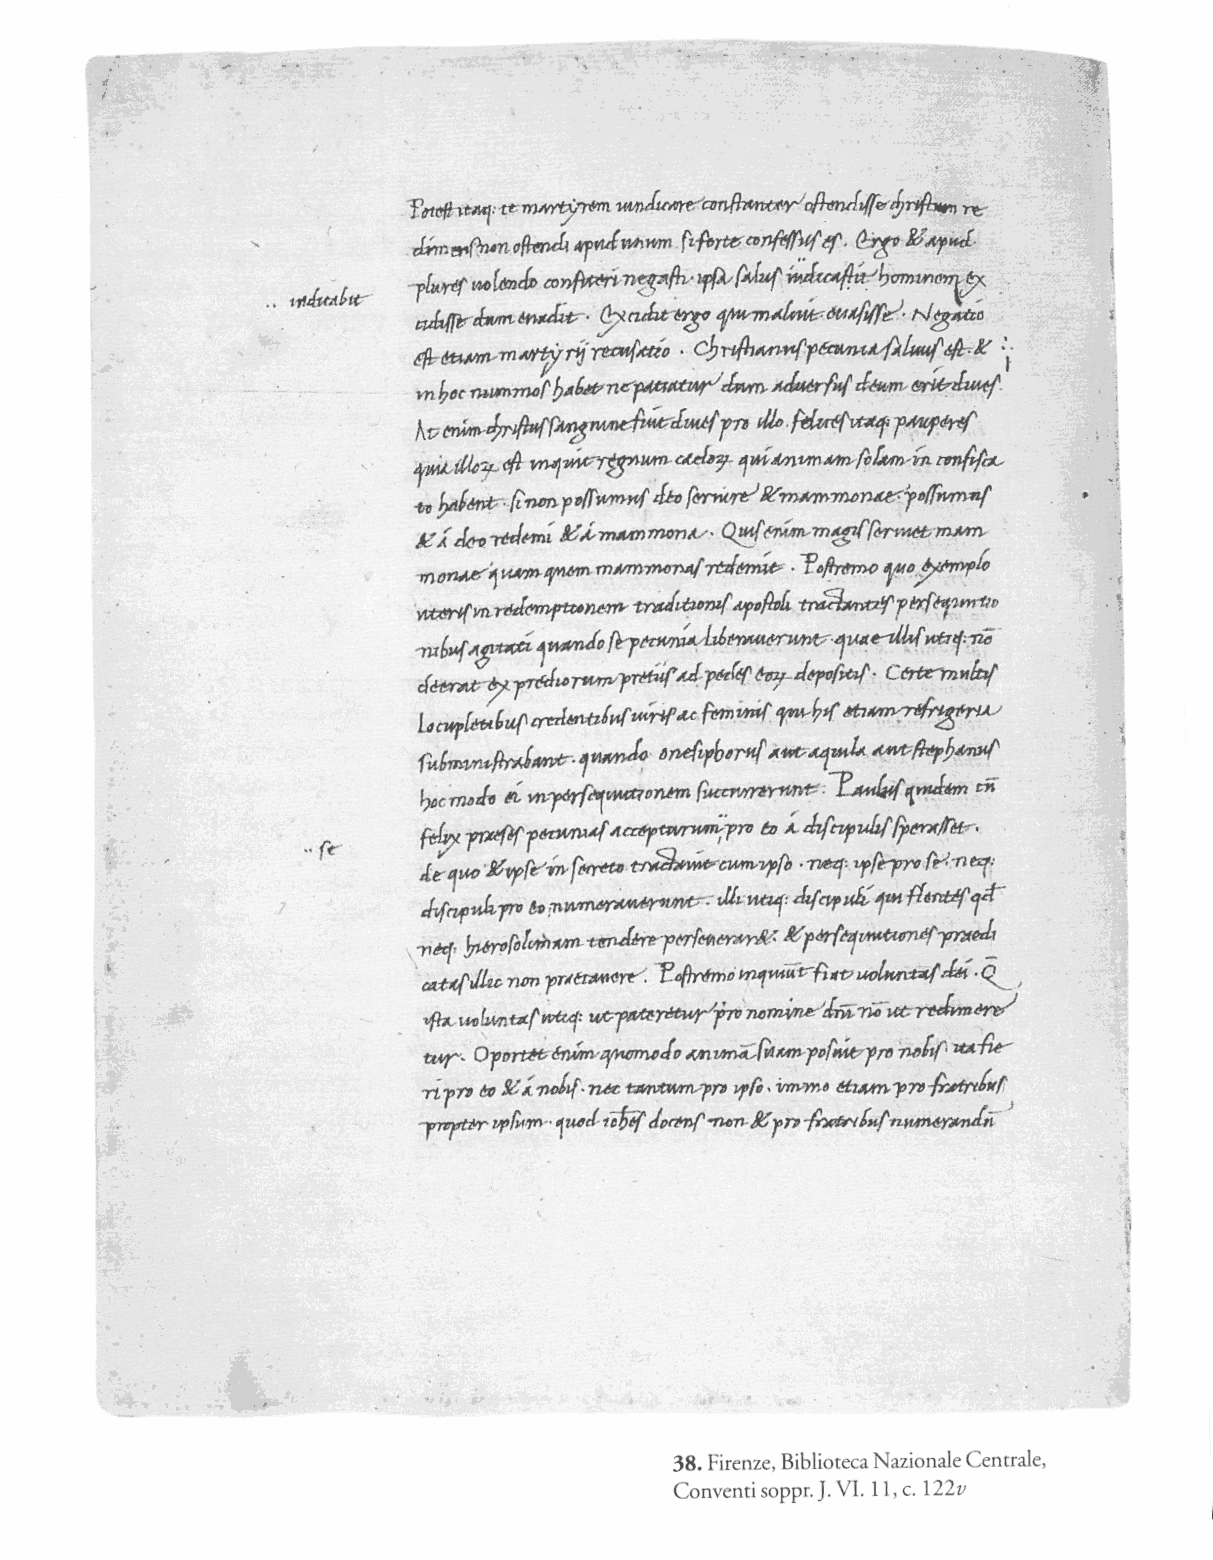 Potest itaq; te martyrem iudicare constanter ostendisse christum re
dimens non ostendi apud unum si forte confessus es. Ergo & apud
plures nolendo confiteri negasti. ipsa salus iudicastit hominem ex
·· indicabit
cidisse dum euadit. Excidit ergo qui maluit euasisse. Negatio
est etiam martyrij recusatio. Christianus pecunia saluus est. &
in hoc nummos habet ne patiatur dum aduersus deum erit diues.
At enim christus sanguine fuit diues pro illo. felices itaq; pauperes
quia illoꝝ est inquit regnum caeloꝝ qui animam solam in confisca
to habent. si non possumus deo seruire & mammonae. possumus
& á deo redemi & á mammona. Quis enim magis seruiet mam
monae quam quem mammonas redemit. Postremo quo exemplo
uteris in redemptionem traditionis apostoli tractantes persequutio
nibus agitati quando se pecunia liberauerunt. quae illis utiq; nō
deerat ex prediorum pretiis ad pedes eoꝝ depositis. Certe multis
locupletibus credentibus uiris ac feminis qui his etiam refrigeria
subministrabant. quando onesiphorus aut aquila aut stephanus
hoc modo ei in persequutionem succurrerunt. Paulus quidem cū
felix praeses pecunias accepturum pro eo á discipulis sperasset.
·· se
de quo & ipse in secreto tractauit cum ipso. neq; ipse pro se. neq;
discipuli pro eo numerauerunt. illi utiq; discipuli qui flentes qđ
neq; hierosolimam tendere perseuerar&. & persequutiones praedi
catas illic non praecauere. Postremo inquiūt fiat uoluntas dei. Q̄
ista uoluntas utiq; ut pateretur pro nomine dn̄i nō ut redimere
tur. Oportet enim quomodo animā suam posuit pro nobis ita fie
ri pro eo & á nobis. nec tantum pro ipso. immo etiam pro fratribus
propter ipsum. quod ioh̄es docens non & pro fratribus numerandū
38. Firenze, Biblioteca Nazionale Centrale,
Conventi soppr. J. VI. 11, c. 122v